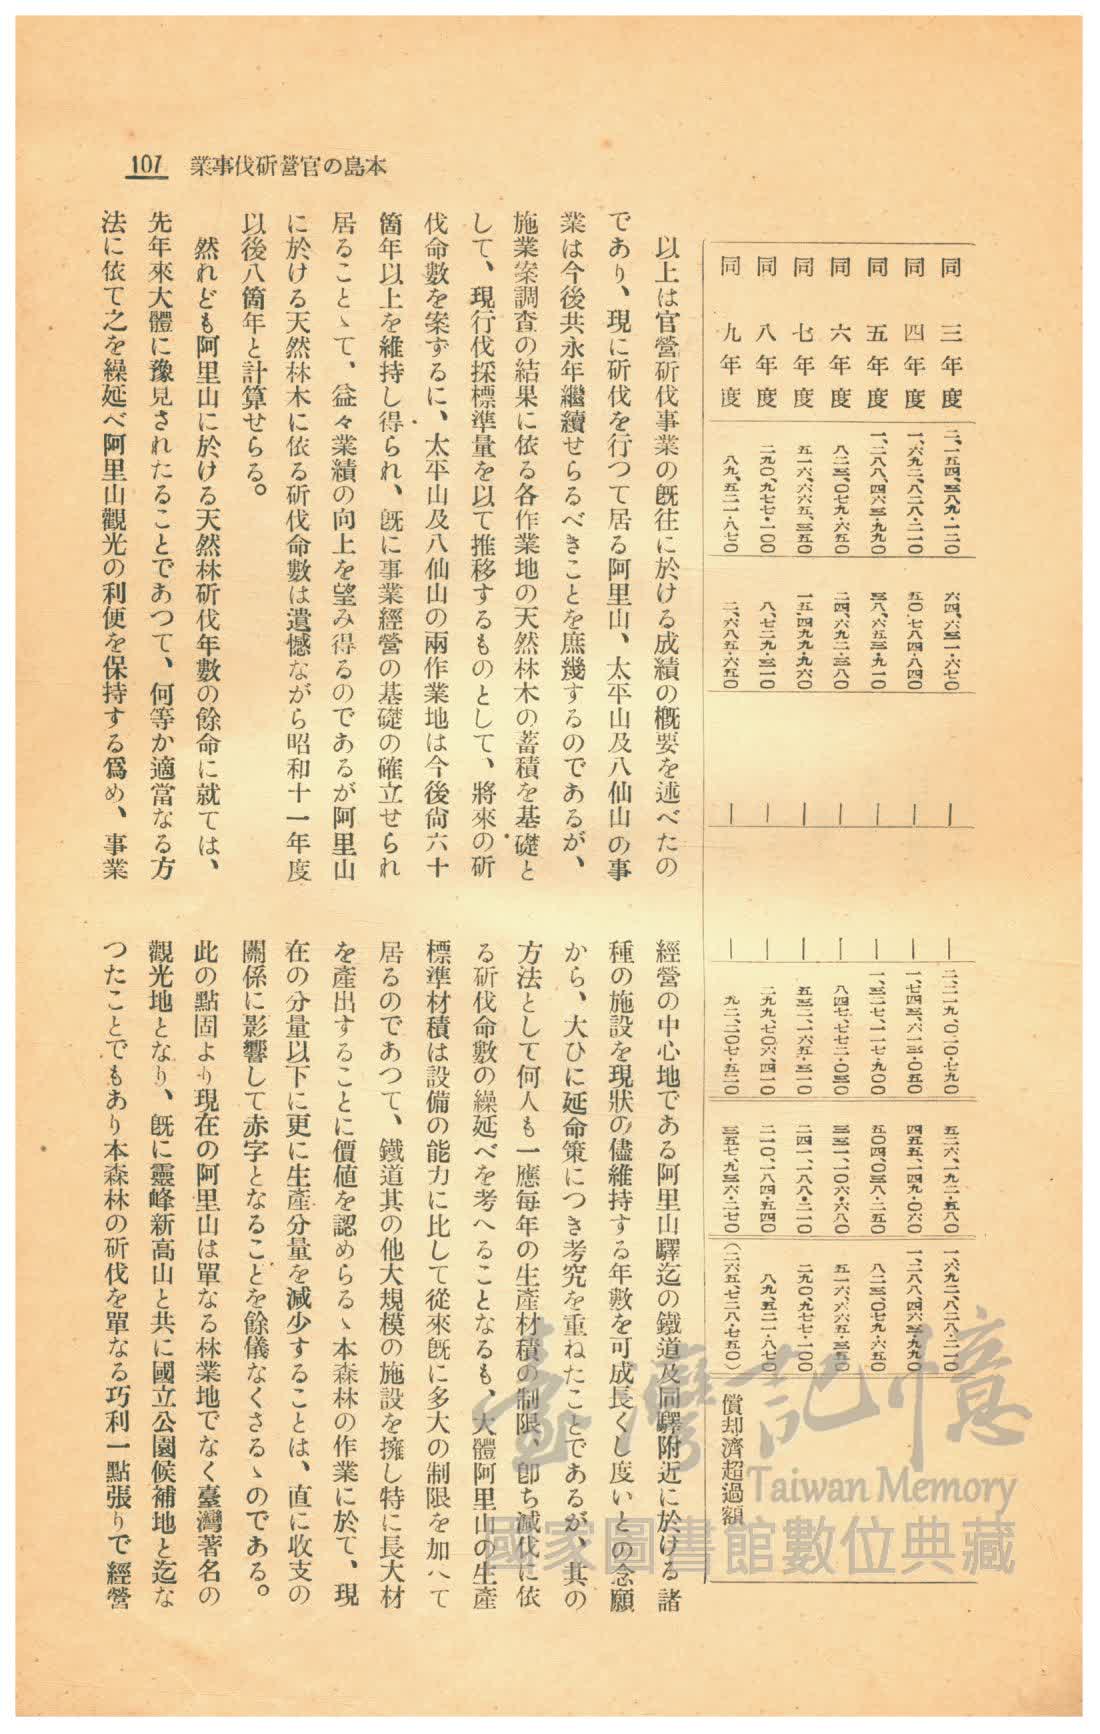 本島の官營斫伐事業 107
同 三年度 二、一五四、三八九・一二〇 六四、六三一・六七〇 — — 二、二一九、〇二〇・七九〇 五二六、一九二・五八〇 一、六九二、八二八・二一〇
同 四年度 一、六九二、八二八・二一〇 五〇、七八四・八四〇 — — 一、七四三、六一三・〇五〇 四五五、一四九・〇六〇 一、二八八、四六三・九九〇
同 五年度 一、二八八、四六三・九九〇 三八、六五三・九一〇 — — 一、三二七、一一七・九〇〇 五〇四、〇三八・二五〇 八二三、〇七九・六五〇
同 六年度 八二三、〇七九・六五〇 二四、六九二・三八〇 — — 八四七、七七二・〇三〇 三三一、一〇六・六八〇 五一六、六六五・三五〇
同 七年度 五一六、六六五、三五〇 一五、四九九・九六〇 — — 五三二、一六五・三一〇 二四一、一八八・二一〇 二九〇、九七七・一〇〇
同 八年度 二九〇、九七七・一〇〇 八、七二九・三一〇 — — 二九九、七〇六、四一〇 二一〇、一八四・五四〇 八九、五二一・八七〇
同 九年度 八九、五二一・八七〇 二、六八五・六五〇 — — 九二、二〇七・五二〇 三五七、九三六・二七〇 （二六五、七二八・七五〇） 償却濟超過額
以上は官營斫伐事業の既往に於ける成績の槪要を述べたの
であり、現に斫伐を行つて居る阿里山、太平山及八仙山の事
業は今後共永年繼續せらるべきことを庶幾するのであるが、
施業案調査の結果に依る各作業地の天然林木の蓄積を基礎と
して、現行伐採標準量を以て推移するものとして、將來の斫
伐命數を案ずるに、太平山及八仙山の兩作業地は今後尙六十
箇年以上を維持し得られ、既に事業經營の基礎の確立せられ
居ることゝて、益々業績の向上を望み得るのであるが阿里山
に於ける天然林木に依る斫伐命數は遺憾ながら昭和十一年度
以後八箇年と計算せらる。
然れども阿里山に於ける天然林斫伐年數の餘命に就ては、
先年來大體に豫見されたることであつて、何等か適當なる方
法に依て之を繰延べ阿里山觀光の利便を保持する爲め、事業
經營の中心地である阿里山驛迄の鐵道及同驛附近に於ける諸
種の施設を現狀の儘維持する年數を可成長くし度いとの念願
から、大ひに延命策につき考究を重ねたことであるが、其の
方法として何人も一應每年の生產材積の制限、卽ち減伐に依
る斫伐命數の繰延べを考へることなるも、大體阿里山の生產
標準材積は設備の能力に比して從來既に多大の制限を加へて
居るのであつて、鐵道其の他大規模の施設を擁し特に長大材
を產出することに價値を認めらるゝ本森林の作業に於て、現
在の分量以下に更に生產分量を減少することは、直に收支の
關係に影響して赤字となることを餘儀なくさるゝのである。
此の點固より現在の阿里山は單なる林業地でなく臺灣著名の
觀光地となり、既に靈峰新高山と共に國立公園候補地と迄な
つたことでもあり本森林の斫伐を單なる巧利一點張りで經營
臺灣記憶
Taiwan Memory
國家圖書館數位典藏